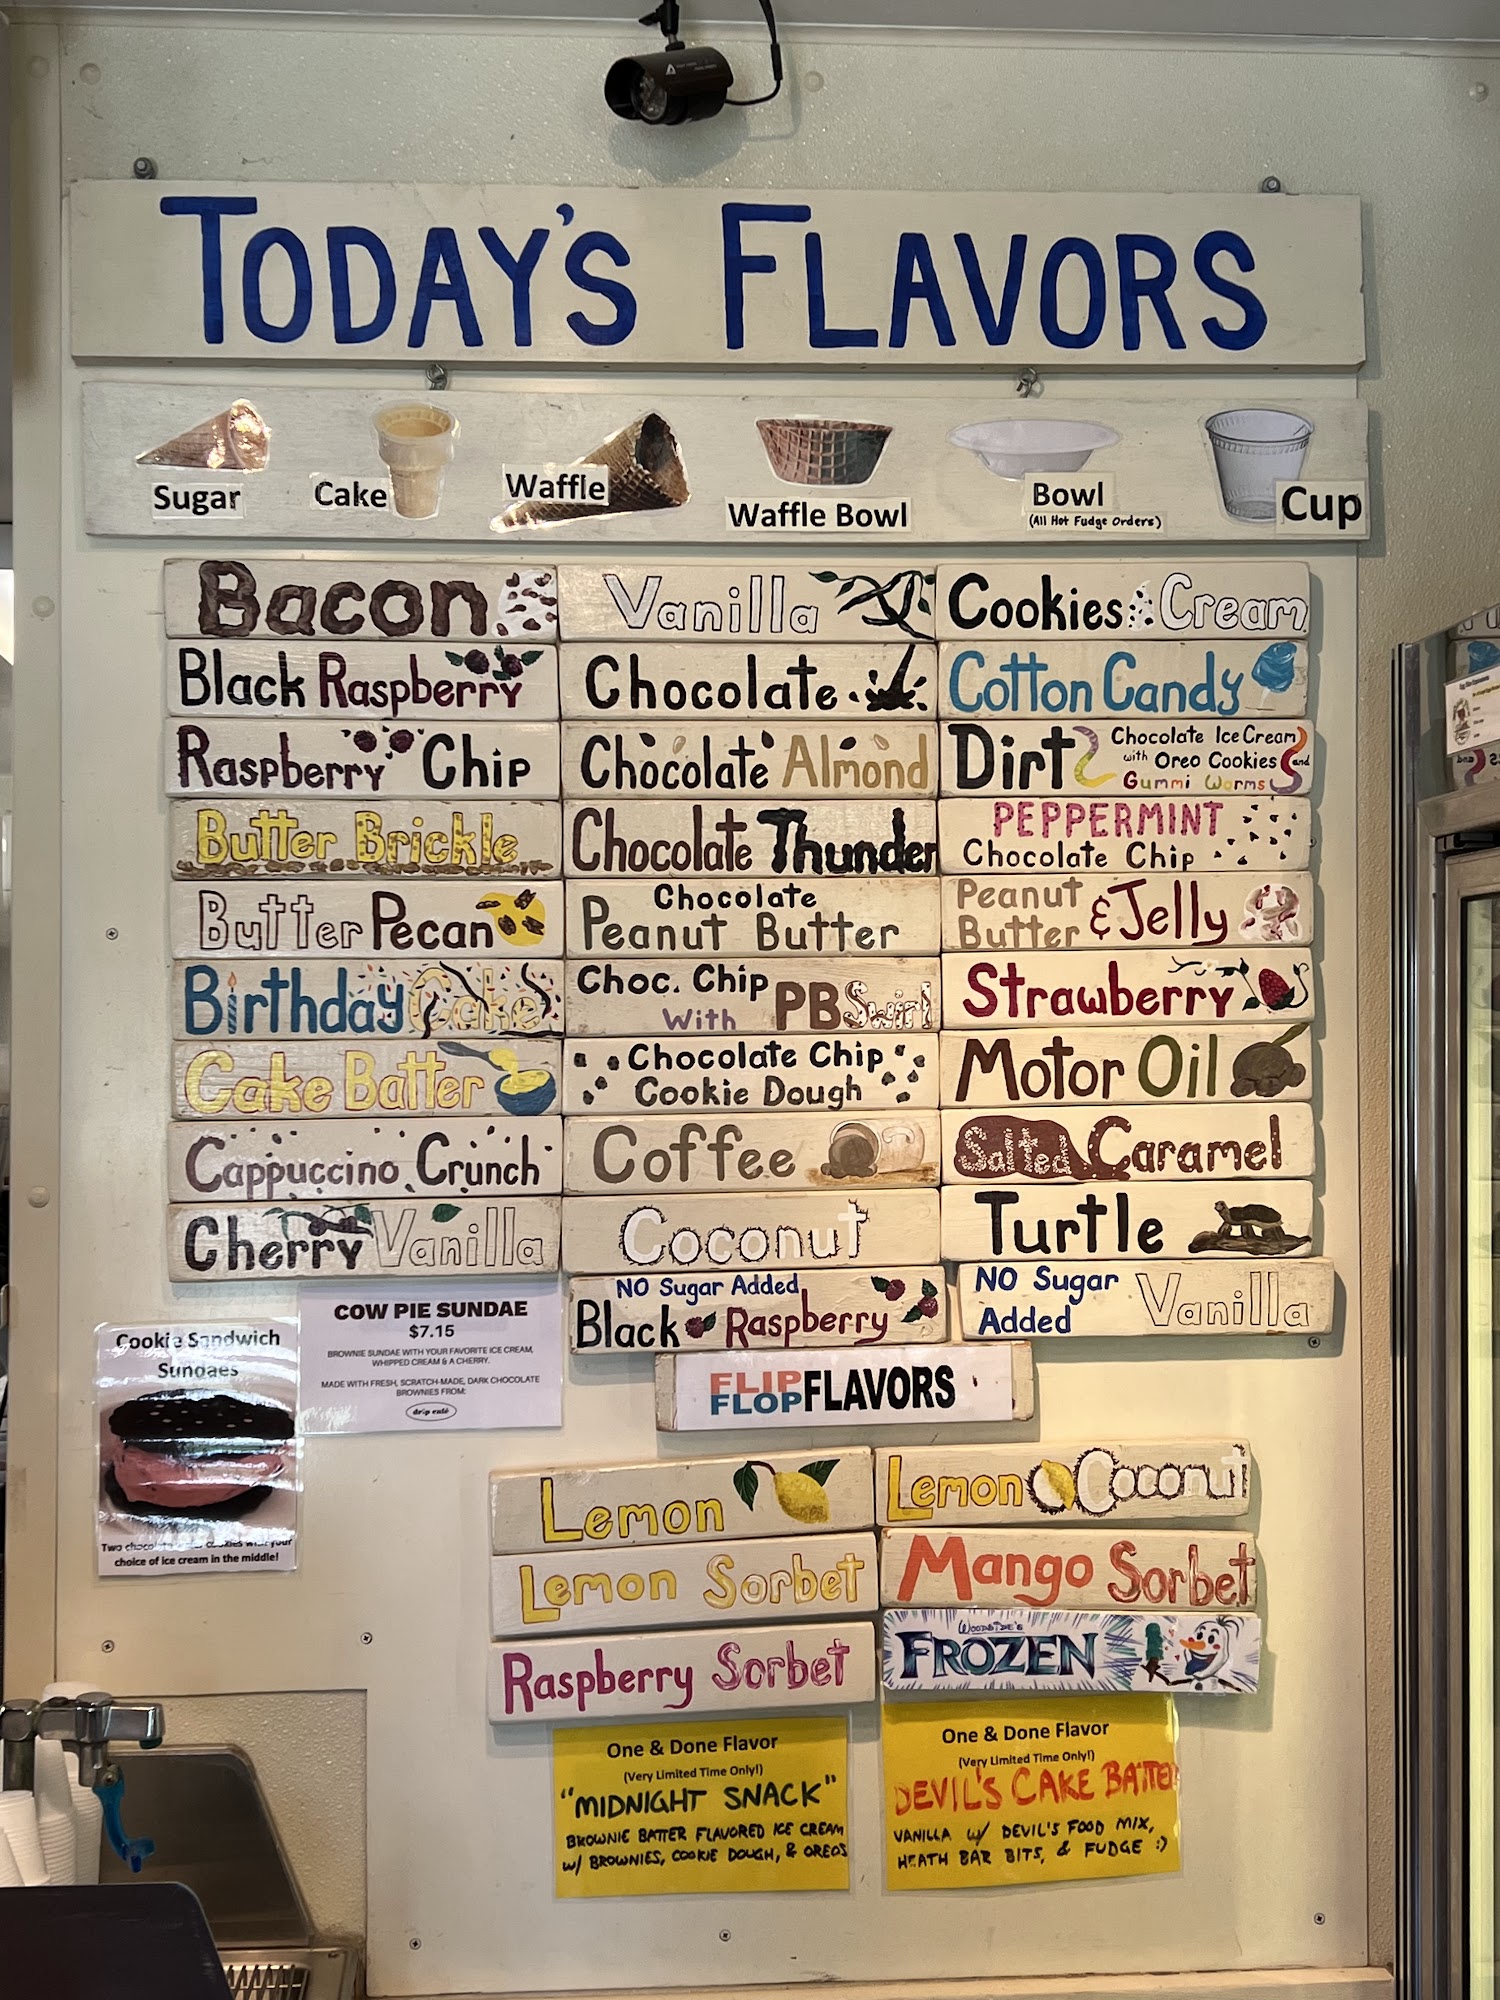 TODAY'S FLAVORS
Sugar
Cake
Waffle
Waffle Bowl
Bowl
(All Hot Fudge Orders)
Cup
Bacon
Black Raspberry
Raspberry Chip
Butter Brickle
Butter Pecan
Birthday Cake
Cake Batter
Cappuccino Crunch
Cherry Vanilla
Vanilla
Chocolate
Chocolate Almond
Chocolate Thunder
Chocolate
Peanut Butter
Choc. Chip
With PB Swirl
Chocolate Chip
Cookie Dough
Coffee
Coconut
NO Sugar Added
Black Raspberry
Cookies Cream
Cotton Candy
Dirt
Chocolate Ice Cream
with Oreo Cookies and
Gummi Worms
PEPPERMINT
Chocolate Chip
Peanut
Butter & Jelly
Strawberry
Motor Oil
Salted Caramel
Turtle
NO Sugar
Added Vanilla
COW PIE SUNDAE
$7.15
BROWNIE SUNDAE WITH YOUR FAVORITE ICE CREAM,
WHIPPED CREAM & A CHERRY.
MADE WITH FRESH, SCRATCH-MADE, DARK CHOCOLATE
BROWNIES FROM:
drip café
Cookie Sandwich
Sundaes
Two your
choice of ice cream in the middle!
FLIP
FLOP FLAVORS
Lemon
Lemon Sorbet
Raspberry Sorbet
Lemon Coconut
Mango Sorbet
WOODSIDE'S
FROZEN
One & Done Flavor
(Very Limited Time Only!)
"MIDNIGHT SNACK"
BROWNIE BATTER FLAVORED ICE CREAM
W/ BROWNIES, COOKIE DOUGH, & OREOS
One & Done Flavor
(Very Limited Time Only!)
DEVIL'S CAKE BATTER
VANILLA W/ DEVIL'S FOOD MIX,
HEATH BAR BITS, & FUDGE :)